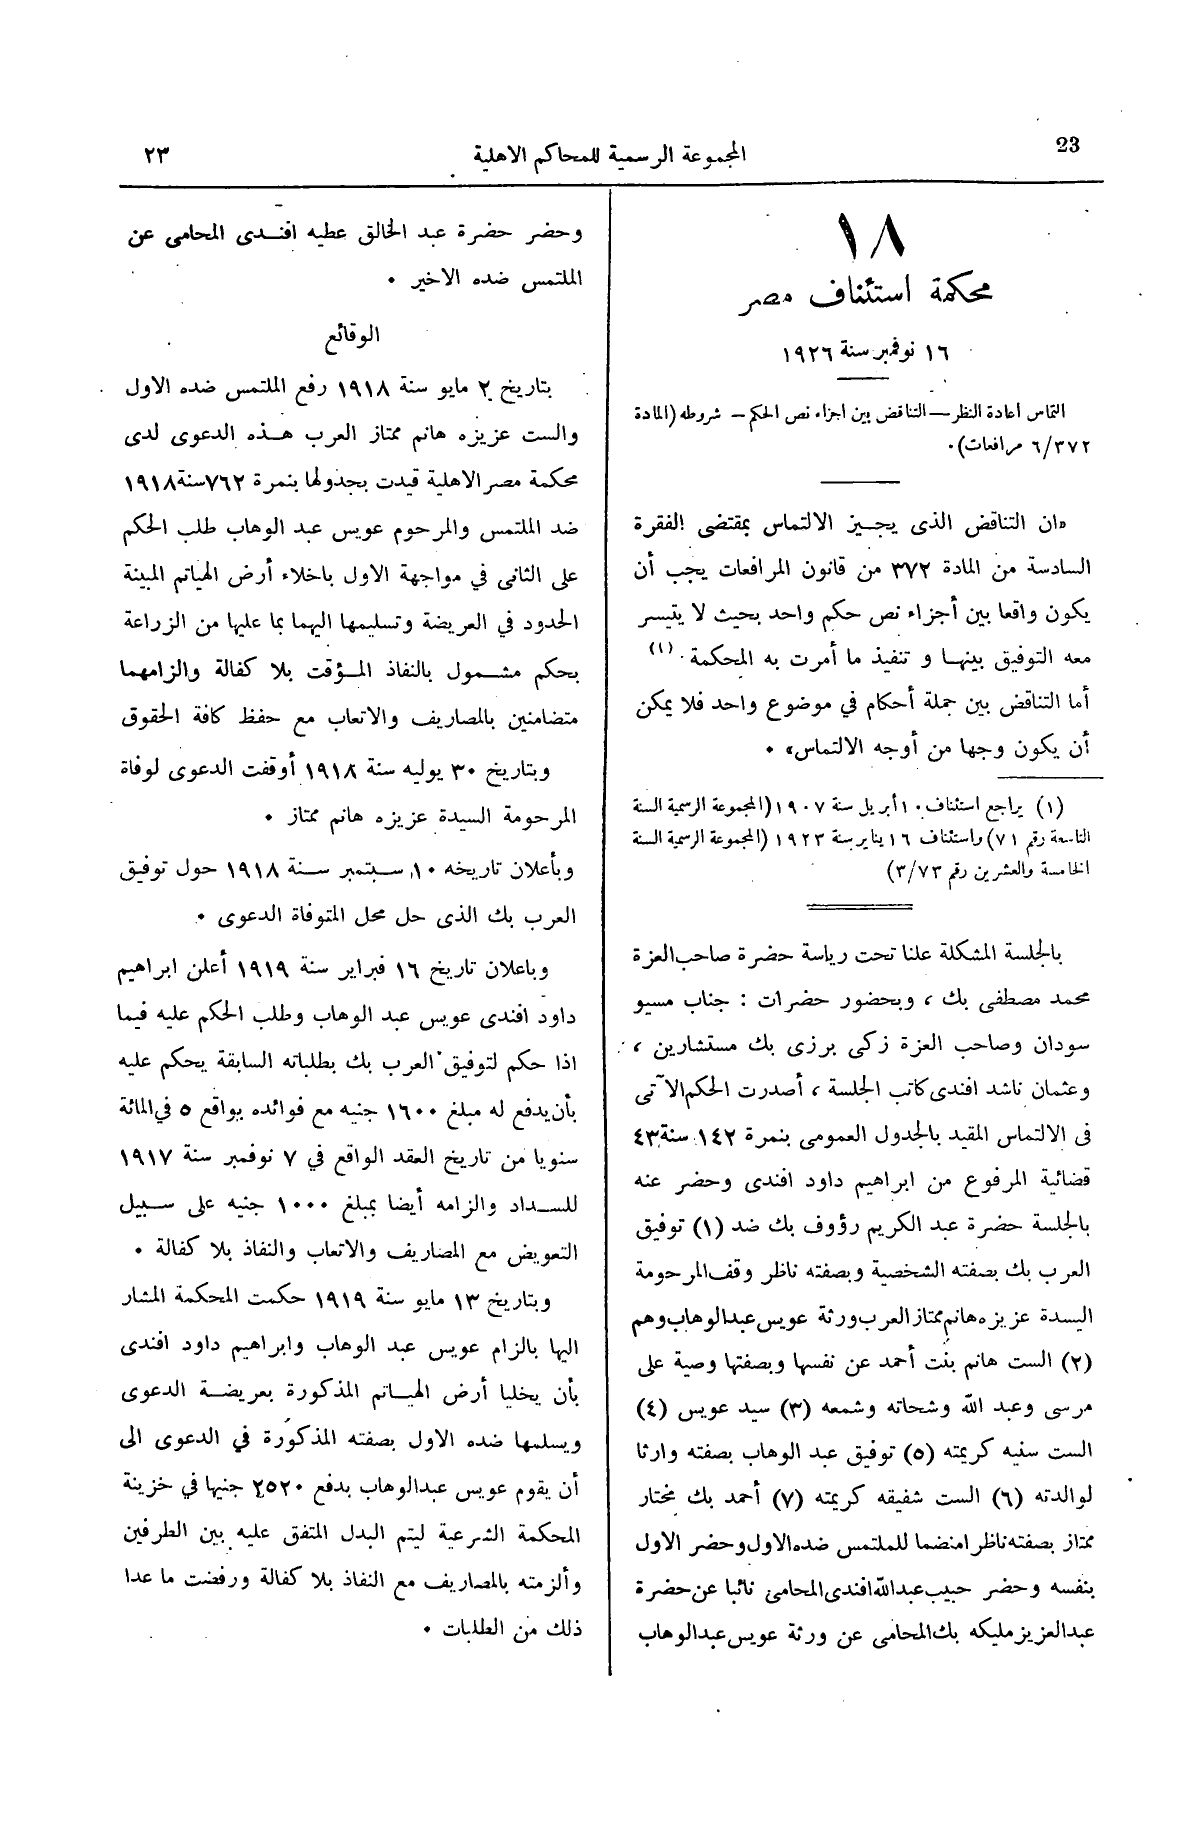 23
المجموعة الرسمية للمحاكم الاهلية
٢٣
١٨
محكمة استئناف مصر
١٦ نوفمبر سنة ١٩٢٦
التماس اعادة النظر — التناقض بين اجزاء نص الحكم — شروطه (المادة
٦/٣٧٢ مرافعات).
«ان التناقض الذى يجيز الالتماس بمقتضى الفقرة
السادسة من المادة ٣٧٢ من قانون المرافعات يجب أن
يكون واقعا بين أجزاء نص حكم واحد بحيث لا يتيسر
معه التوفيق بينها و تنفيذ ما أمرت به المحكمة. (١)
أما التناقض بين جملة أحكام في موضوع واحد فلا يمكن
أن يكون وجها من أوجه الالتماس» .
(١) يراجع استئناف ١٠ أبريل سنة ١٩٠٧ (المجموعة الرسمية السنة
التاسعة رقم ٧١) واستئناف ١٦ يناير سنة ١٩٢٣ (المجموعة الرسمية السنة
الخامسة والعشرين رقم ٣/٧٣)
بالجلسة المشكلة علنا تحت رياسة حضرة صاحب العزة
محمد مصطفى بك ، وبحضور حضرات : جناب مسيو
سودان وصاحب العزة زكى برزى بك مستشارين ،
وعثمان ناشد افندى كاتب الجلسة ، أصدرت الحكم الآتى
فى الالتماس المقيد بالجدول العمومى بنمرة ١٤٢ سنة ٤٣
قضائية المرفوع من ابراهيم داود افندى وحضر عنه
بالجلسة حضرة عبد الكريم رؤوف بك ضد (١) توفيق
العرب بك بصفته الشخصية وبصفته ناظر وقف المرحومة
السيدة عزيزه هانم ممتاز العرب ورثة عويس عبد الوهاب وهم
(٢) الست هانم بنت أحمد عن نفسها وبصفتها وصية على
مرسى وعبد الله وشحاته وشمعه (٣) سيد عويس (٤)
الست سنيه كريمته (٥) توفيق عبد الوهاب بصفته وارثا
لوالدته (٦) الست شفيقه كريمته (٧) أحمد بك مختار
ممتاز بصفته ناظرا منضما للملتمس ضده الاول وحضر الاول
بنفسه وحضر حبيب عبد الله افندى المحامى نائبا عن حضرة
عبد العزيز مليكه بك المحامى عن ورثة عويس عبد الوهاب
وحضر حضرة عبد الخالق عطيه افندى المحامى عن
الملتمس ضده الاخير .
الوقائع
بتاريخ ٢ مايو سنة ١٩١٨ رفع الملتمس ضده الاول
والست عزيزه هانم ممتاز العرب هذه الدعوى لدى
محكمة مصر الاهلية قيدت بجدولها بنمرة ٧٦٢ سنة ١٩١٨
ضد الملتمس والمرحوم عويس عبد الوهاب طلب الحكم
على الثانى في مواجهة الاول باخلاء أرض الهياتم المبينة
الحدود في العريضة وتسليمها اليهما بما عليها من الزراعة
بحكم مشمول بالنفاذ المؤقت بلا كفالة والزامهما
متضامنين بالمصاريف والاتعاب مع حفظ كافة الحقوق
وبتاريخ ٣٠ يوليه سنة ١٩١٨ أوقفت الدعوى لوفاة
المرحومة السيدة عزيزه هانم ممتاز .
وبأعلان تاريخه ١٠ سبتمبر سنة ١٩١٨ حول توفيق
العرب بك الذى حل محل المتوفاة الدعوى .
وباعلان تاريخ ١٦ فبراير سنة ١٩١٩ أعلن ابراهيم
داود افندى عويس عبد الوهاب وطلب الحكم عليه فيما
اذا حكم لتوفيق العرب بك بطلباته السابقة يحكم عليه
بأن يدفع له مبلغ ١٦٠٠ جنيه مع فوائده بواقع ٥ في المائة
سنويا من تاريخ العقد الواقع في ٧ نوفمبر سنة ١٩١٧
للسداد والزامه أيضا بمبلغ ١٠٠٠ جنيه على سبيل
التعويض مع المصاريف والاتعاب والنفاذ بلا كفالة .
وبتاريخ ١٣ مايو سنة ١٩١٩ حكمت المحكمة المشار
اليها بالزام عويس عبد الوهاب وابراهيم داود افندى
بأن يخليا أرض الهياتم المذكورة بعريضة الدعوى
ويسلمها ضده الاول بصفته المذكورة في الدعوى الى
أن يقوم عويس عبد الوهاب بدفع ٢٥٢٠ جنيها في خزينة
المحكمة الشرعية ليتم البدل المتفق عليه بين الطرفين
وألزمته بالمصاريف مع النفاذ بلا كفالة ورفضت ما عدا
ذلك من الطلبات .